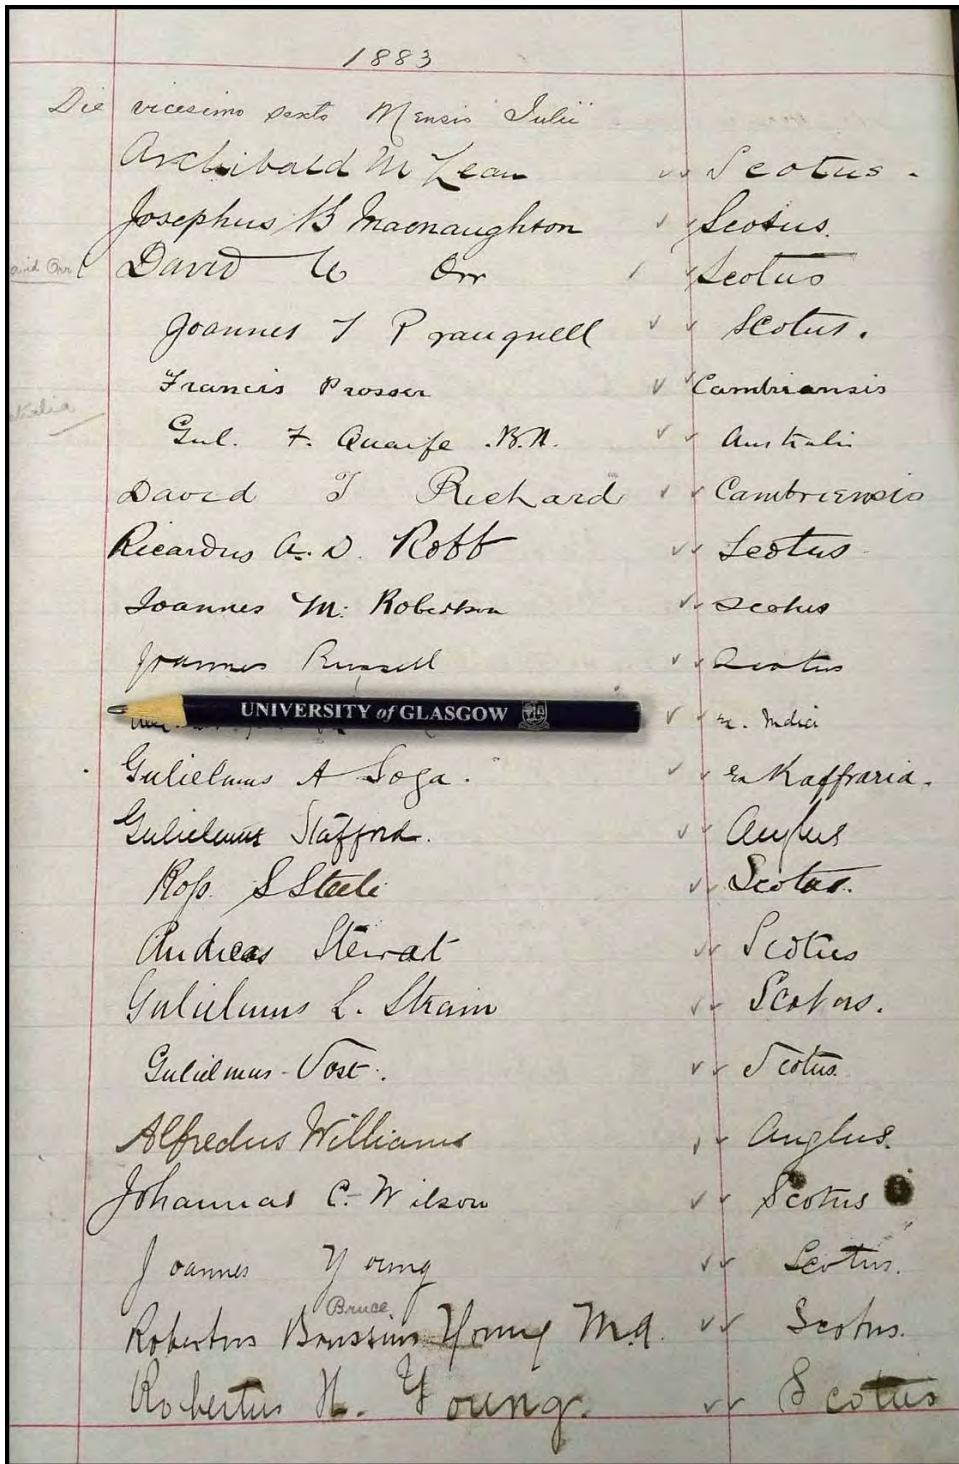 1883
Die vicesimo sexto Mensis Iulii
Archibald McLean Scotus.
Josephus B Macnaughton Scotus.
David Orr
David Orr Scotus
Joannes T Prangnell Scotus.
Francis Prosser Cambriansis
Gul. F. Quaife .B.A. Australii
David T Richard Cambriensis
Ricardus A. D. Robb Scotus
Joannes M. Robertson Scotus
Joannes Russell Scotus
UNIVERSITY of GLASGOW
Indici
Gulielmus A Soga. Ex Kaffraria.
Gulielmus Stafford. Anglus
Ross. S Steele Scotus.
Andreas Stewat Scotus
Gulielmus L. Strain Scotus.
Gulielmus Vost. Scotus
Alfredus Williams Anglus.
Johannas C. Wilson Scotus
Joannes Young Scotus.
Bruce
Robertus Young M.A. Scotus.
Robertus H. Young. Scotus